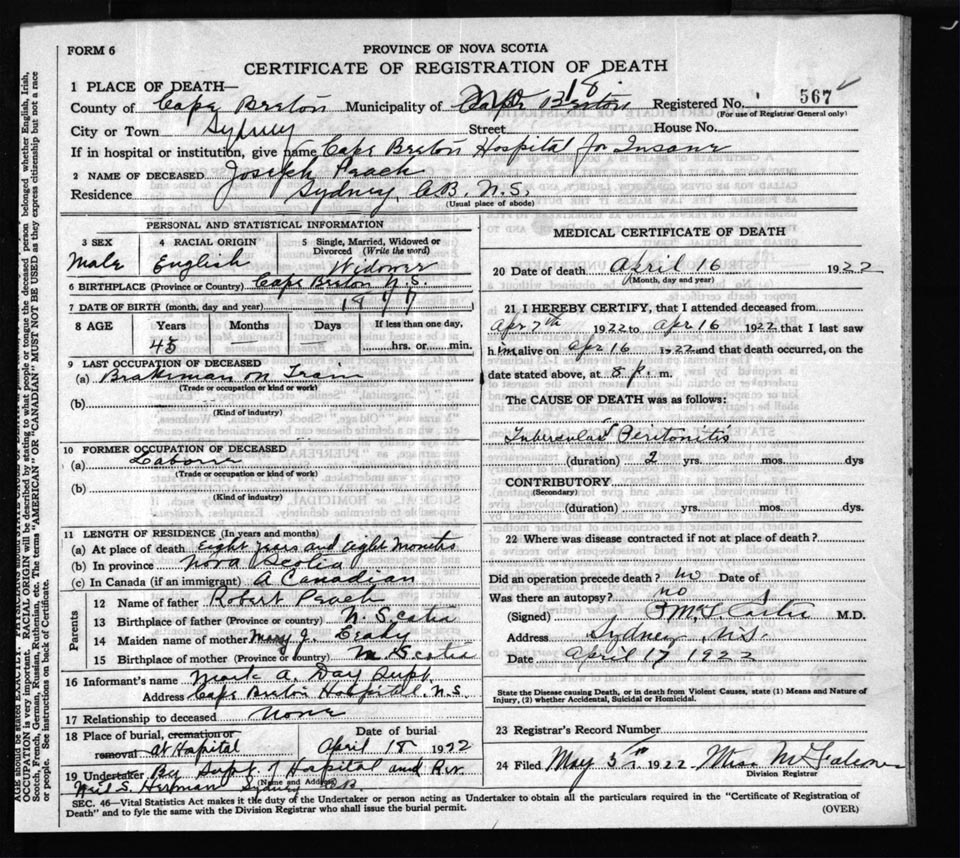 FORM 6
PROVINCE OF NOVA SCOTIA
CERTIFICATE OF REGISTRATION OF DEATH
1 PLACE OF DEATH—
18
County of Cape Breton Municipality of Cape Breton Registered No. 567
(For use of Registrar General only)
City or Town Sydney Street House No.
If in hospital or institution, give name Cape Breton Hospital for Insane
2 NAME OF DECEASED Joseph Peach
Residence Sydney, C.B. N.S.
(Usual place of abode)
PERSONAL AND STATISTICAL INFORMATION
3 SEX 4 RACIAL ORIGIN 5 Single, Married, Widowed or Divorced (Write the word)
Male English Widower
6 BIRTHPLACE (Province or Country) Cape Breton N.S.
7 DATE OF BIRTH (month, day and year) 1877
8 AGE Years Months Days If less than one day,
45 — — hrs. or min.
9 LAST OCCUPATION OF DECEASED
(a) Brakeman on Train
(Trade or occupation or kind of work)
(b)
(Kind of industry)
10 FORMER OCCUPATION OF DECEASED
(a) Laborer
(Trade or occupation or kind of work)
(b)
(Kind of industry)
11 LENGTH OF RESIDENCE (In years and months)
(a) At place of death Eight years and eight months
(b) In province Nova Scotia
(c) In Canada (if an immigrant) A Canadian
Parents
12 Name of father Robert Peach
13 Birthplace of father (Province or country) N. Scotia
14 Maiden name of mother Mary J.
15 Birthplace of mother (Province or country) N. Scotia
16 Informant's name Mark A. Day Supt
Address Cape Breton Hospital N.S.
17 Relationship to deceased None
18 Place of burial, cremation or removal Date of burial
at Hospital April 18 1922
19 Undertaker By Supt of Hospital and Rev.
(Name and Address)
Neil S. Herman Sydney C.B.
MEDICAL CERTIFICATE OF DEATH
20 Date of death April 16 1922
(Month, day and year)
21 I HEREBY CERTIFY, that I attended deceased from
Apr 7th 1922 to Apr 16 1922 that I last saw
him alive on Apr 16 1922 and that death occurred, on the
date stated above, at 8 p. m.
The CAUSE OF DEATH was as follows:
Tubercular Peritonitis
(duration) 2 yrs. mos. dys
CONTRIBUTORY
(Secondary)
(duration) yrs. mos. dys.
22 Where was disease contracted if not at place of death?
Did an operation precede death? no Date of
Was there an autopsy? no
(Signed) M.D.
Address Sydney N.S.
Date April 17 1922
State the Disease causing Death, or in death from Violent Causes, state (1) Means and Nature of
Injury, (2) whether Accidental, Suicidal or Homicidal.
23 Registrar's Record Number
24 Filed May 5th 1922
Division Registrar
SEC. 46—Vital Statistics Act makes it the duty of the Undertaker or person acting as Undertaker to obtain all the particulars required in the "Certificate of Registration of
Death" and to fyle the same with the Division Registrar who shall issue the burial permit.
(OVER)
OCCUPATION is very important. RACIAL ORIGIN will be described by stating to what people or tongue the deceased person belonged whether English, Irish,
Scotch, French, German, Russian, Ruthenian, etc. The terms "AMERICAN" OR "CANADIAN" MUST NOT BE USED as they express citizenship but not a race
or people. See instructions on back of Certificate.